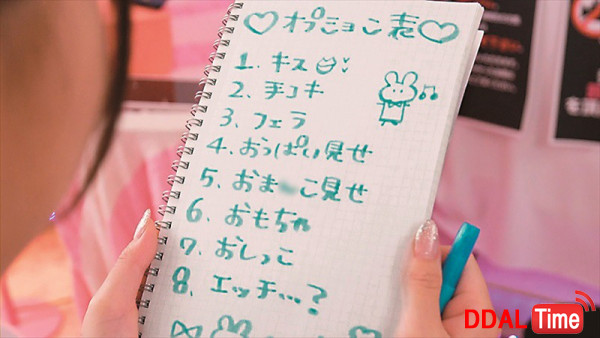 ♡オプション表♡
1. キス
2. 手コキ
3. フェラ
4. おっぱい見せ
5. おま こ見せ
6. おもちゃ
7. おしっこ
8. エッチ…?
DDAL Time